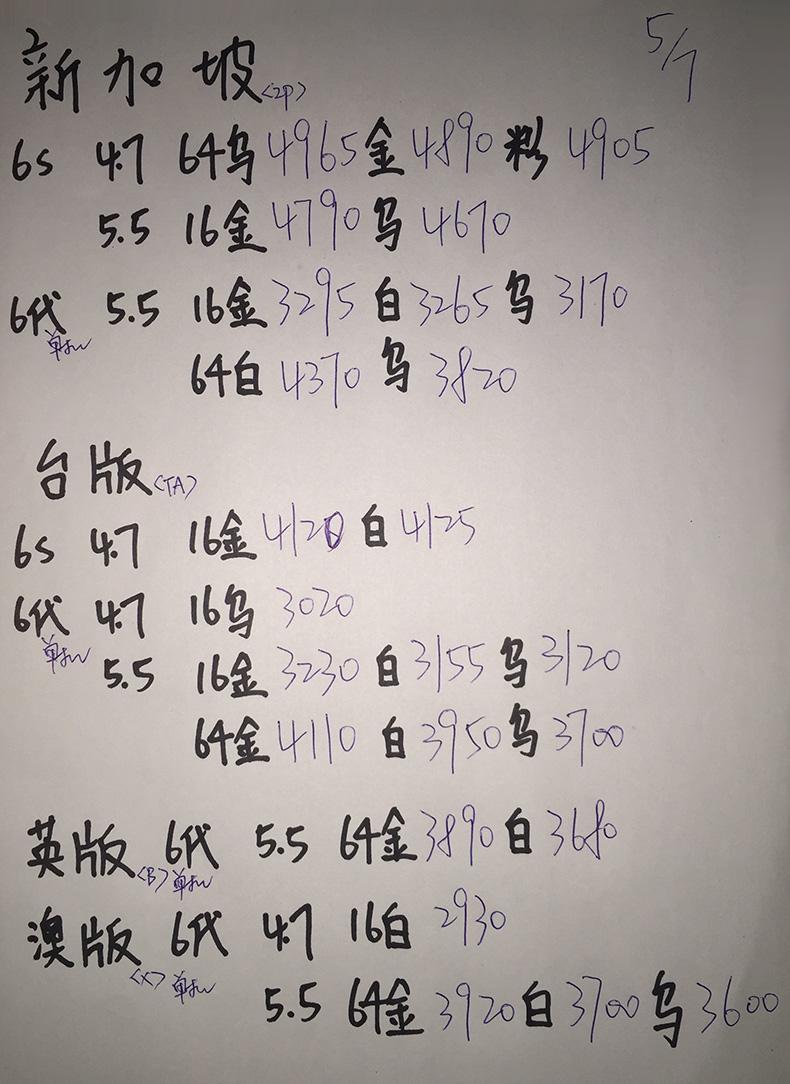 5/7
新加坡<ZP>
6s 4.7 64乌4965金4890粉4905
5.5 16金4790乌4670
6代 5.5 16金3295白3265乌3170
64白4370乌3820
台版<TA>
6s 4.7 16金4120白4125
6代 4.7 16乌3020
5.5 16金3230白3155乌3120
64金4110白3950乌3700
英版<B> 6代 5.5 64金3890白3680
澳版<X> 6代 4.7 16白2930
5.5 64金3920白3700乌3600